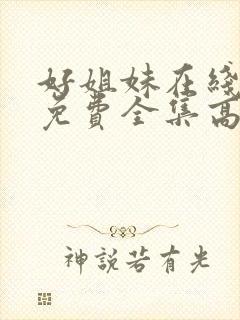 好姐妹在綫
免費全集高
神説若有光